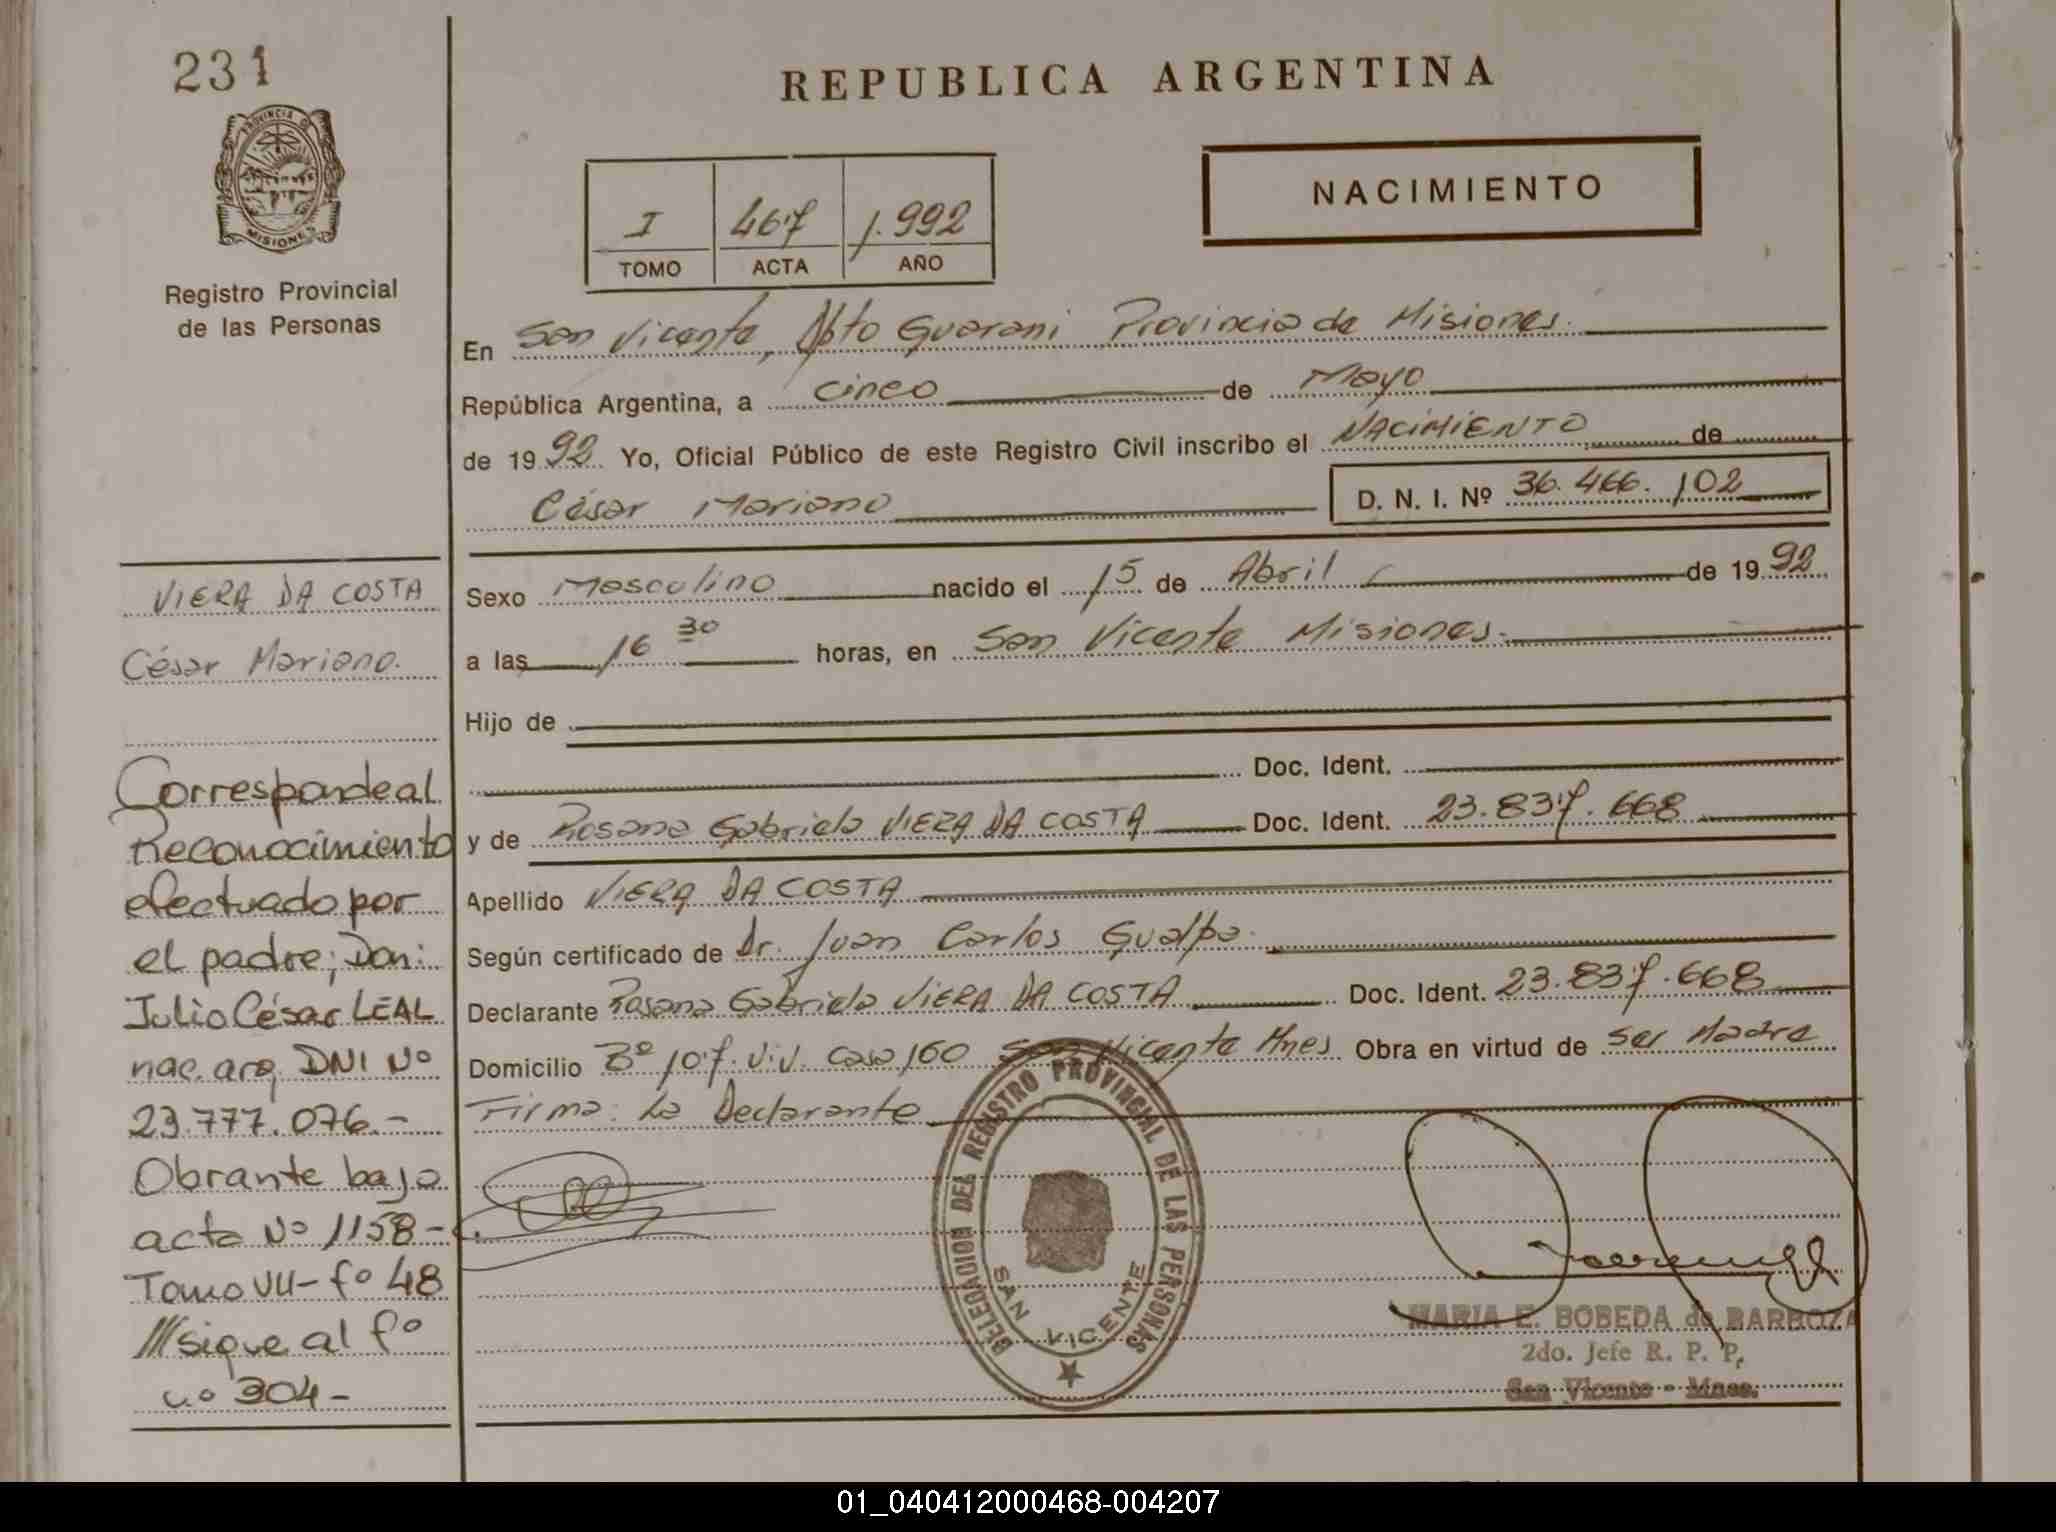 231
PROVINCIA DE
MISIONES
Registro Provincial
de las Personas
REPUBLICA ARGENTINA
I 467 1.992
TOMO ACTA AÑO
NACIMIENTO
En San Vicente, Dpto Guarani Provincia de Misiones.
República Argentina, a cinco de Mayo
de 1992 Yo, Oficial Público de este Registro Civil inscribo el NACIMIENTO de
César Mariano D. N. I. Nº 36.466.102
Sexo Masculino nacido el 15 de Abril de 1992
a las 16 30 horas, en San Vicente Misiones.
Hijo de
Doc. Ident.
y de Rosana Gabriela VIERA DA COSTA Doc. Ident. 23.837.668
Apellido VIERA DA COSTA
Según certificado de Dr. Juan Carlos Gualpa.
Declarante Rosana Gabriela VIERA DA COSTA Doc. Ident. 23.837.668
Domicilio Bº 107 Viv. Casa 160 San Vicente Mnes Obra en virtud de ser Madre
Firma: La Declarante
VIERA DA COSTA
César Mariano.
Corresponde al
Reconocimiento
efectuado por
el padre; Don:
Julio César LEAL
nac. arg. DNI Nº
23.777.076.-
Obrante bajo
acta Nº 1158-
Tomo VII- fº 48
///sigue al fº
nº 304-
DELEGACION DEL REGISTRO PROVINCIAL DE LAS PERSONAS
SAN VICENTE
MARIA E. BOBEDA de BARBOZA
2do. Jefe R. P. P.
San Vicente - Mnes.
01_040412000468-004207